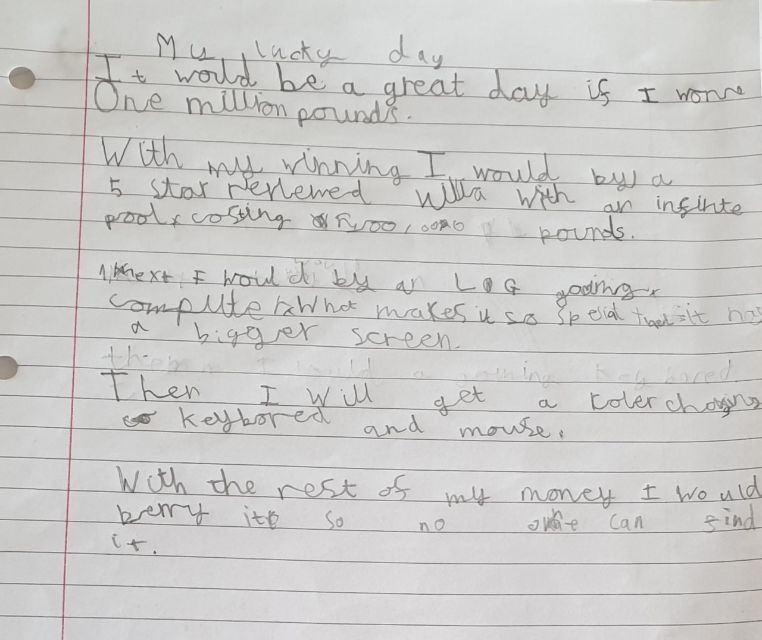 My lucky day
It would be a great day if I wonne
One million pounds.
With my winning I would by a
5 star reriewed villa with an infinte
pool, costing pounds.
next I would by an LOG
computer. What makes it so special it has
a bigger screen.
Then I will get a coler
keybored and mouse.
With the rest of my money I would
berry it so no one can find
it.